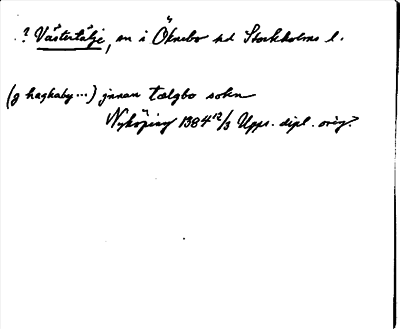 ? Västertälje, sn i Öknebo hd Stockholms l.
(g haghaby...) jnnan tælgbo sokn
Nyköping 1384 12/3 Upps. dipl. orig.